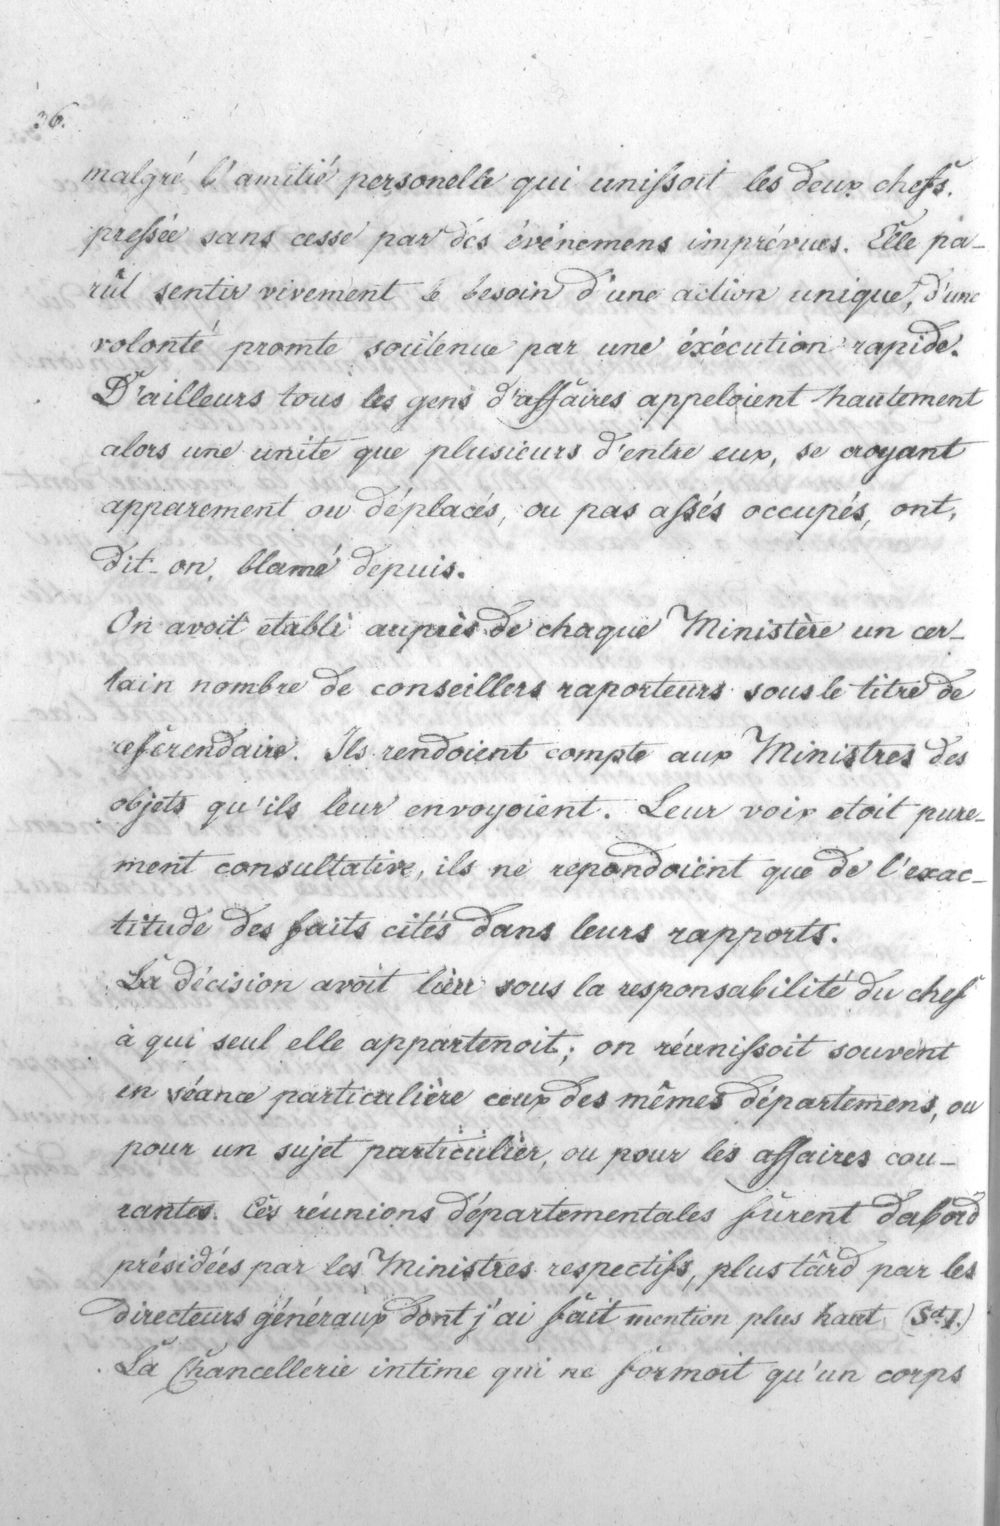 36.
malgré l'amitié personelle qui unissoit les deux chefs.
pressée sans cesse par des événemens imprévues. Elle pa-
rût sentir vivement le besoin d'une action unique, d'une
volonté promte soutenue par une éxécution rapide.
D'ailleurs tous les gens d'affaires appeloient hautement
alors une unité que plusieurs d'entre eux, se croyant
apparement ou déplacés, ou pas assés occupés, ont,
dit-on, blamé depuis.
On avoit etabli auprès de chaque Ministère un cer-
tain nombre de conseillers raporteurs sous le titre de
referendaire. Ils rendoient compte aux Ministres des
objets qu'ils leur envoyoient. Leur voix etoit pure-
ment consultative, ils ne repondoient que de l'exac-
titude des faits cités dans leurs rapports.
La décision avoit lieu sous la responsabilité du chef
à qui seul elle appartenoit; on réunissoit souvent
en séance particulière ceux des mêmes départemens, ou
pour un sujet particulier, ou pour les affaires cou-
rantes. Ces réunions départementales furent dabord
présidées par les Ministres respectifs, plus târd par les
directeurs généraux dont j'ai fait mention plus haut (Sd I.)
La Chancellerie intime qui ne formoit qu'un corps